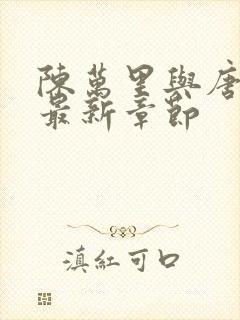 陳萬里與唐
最新章節
滇紅可口